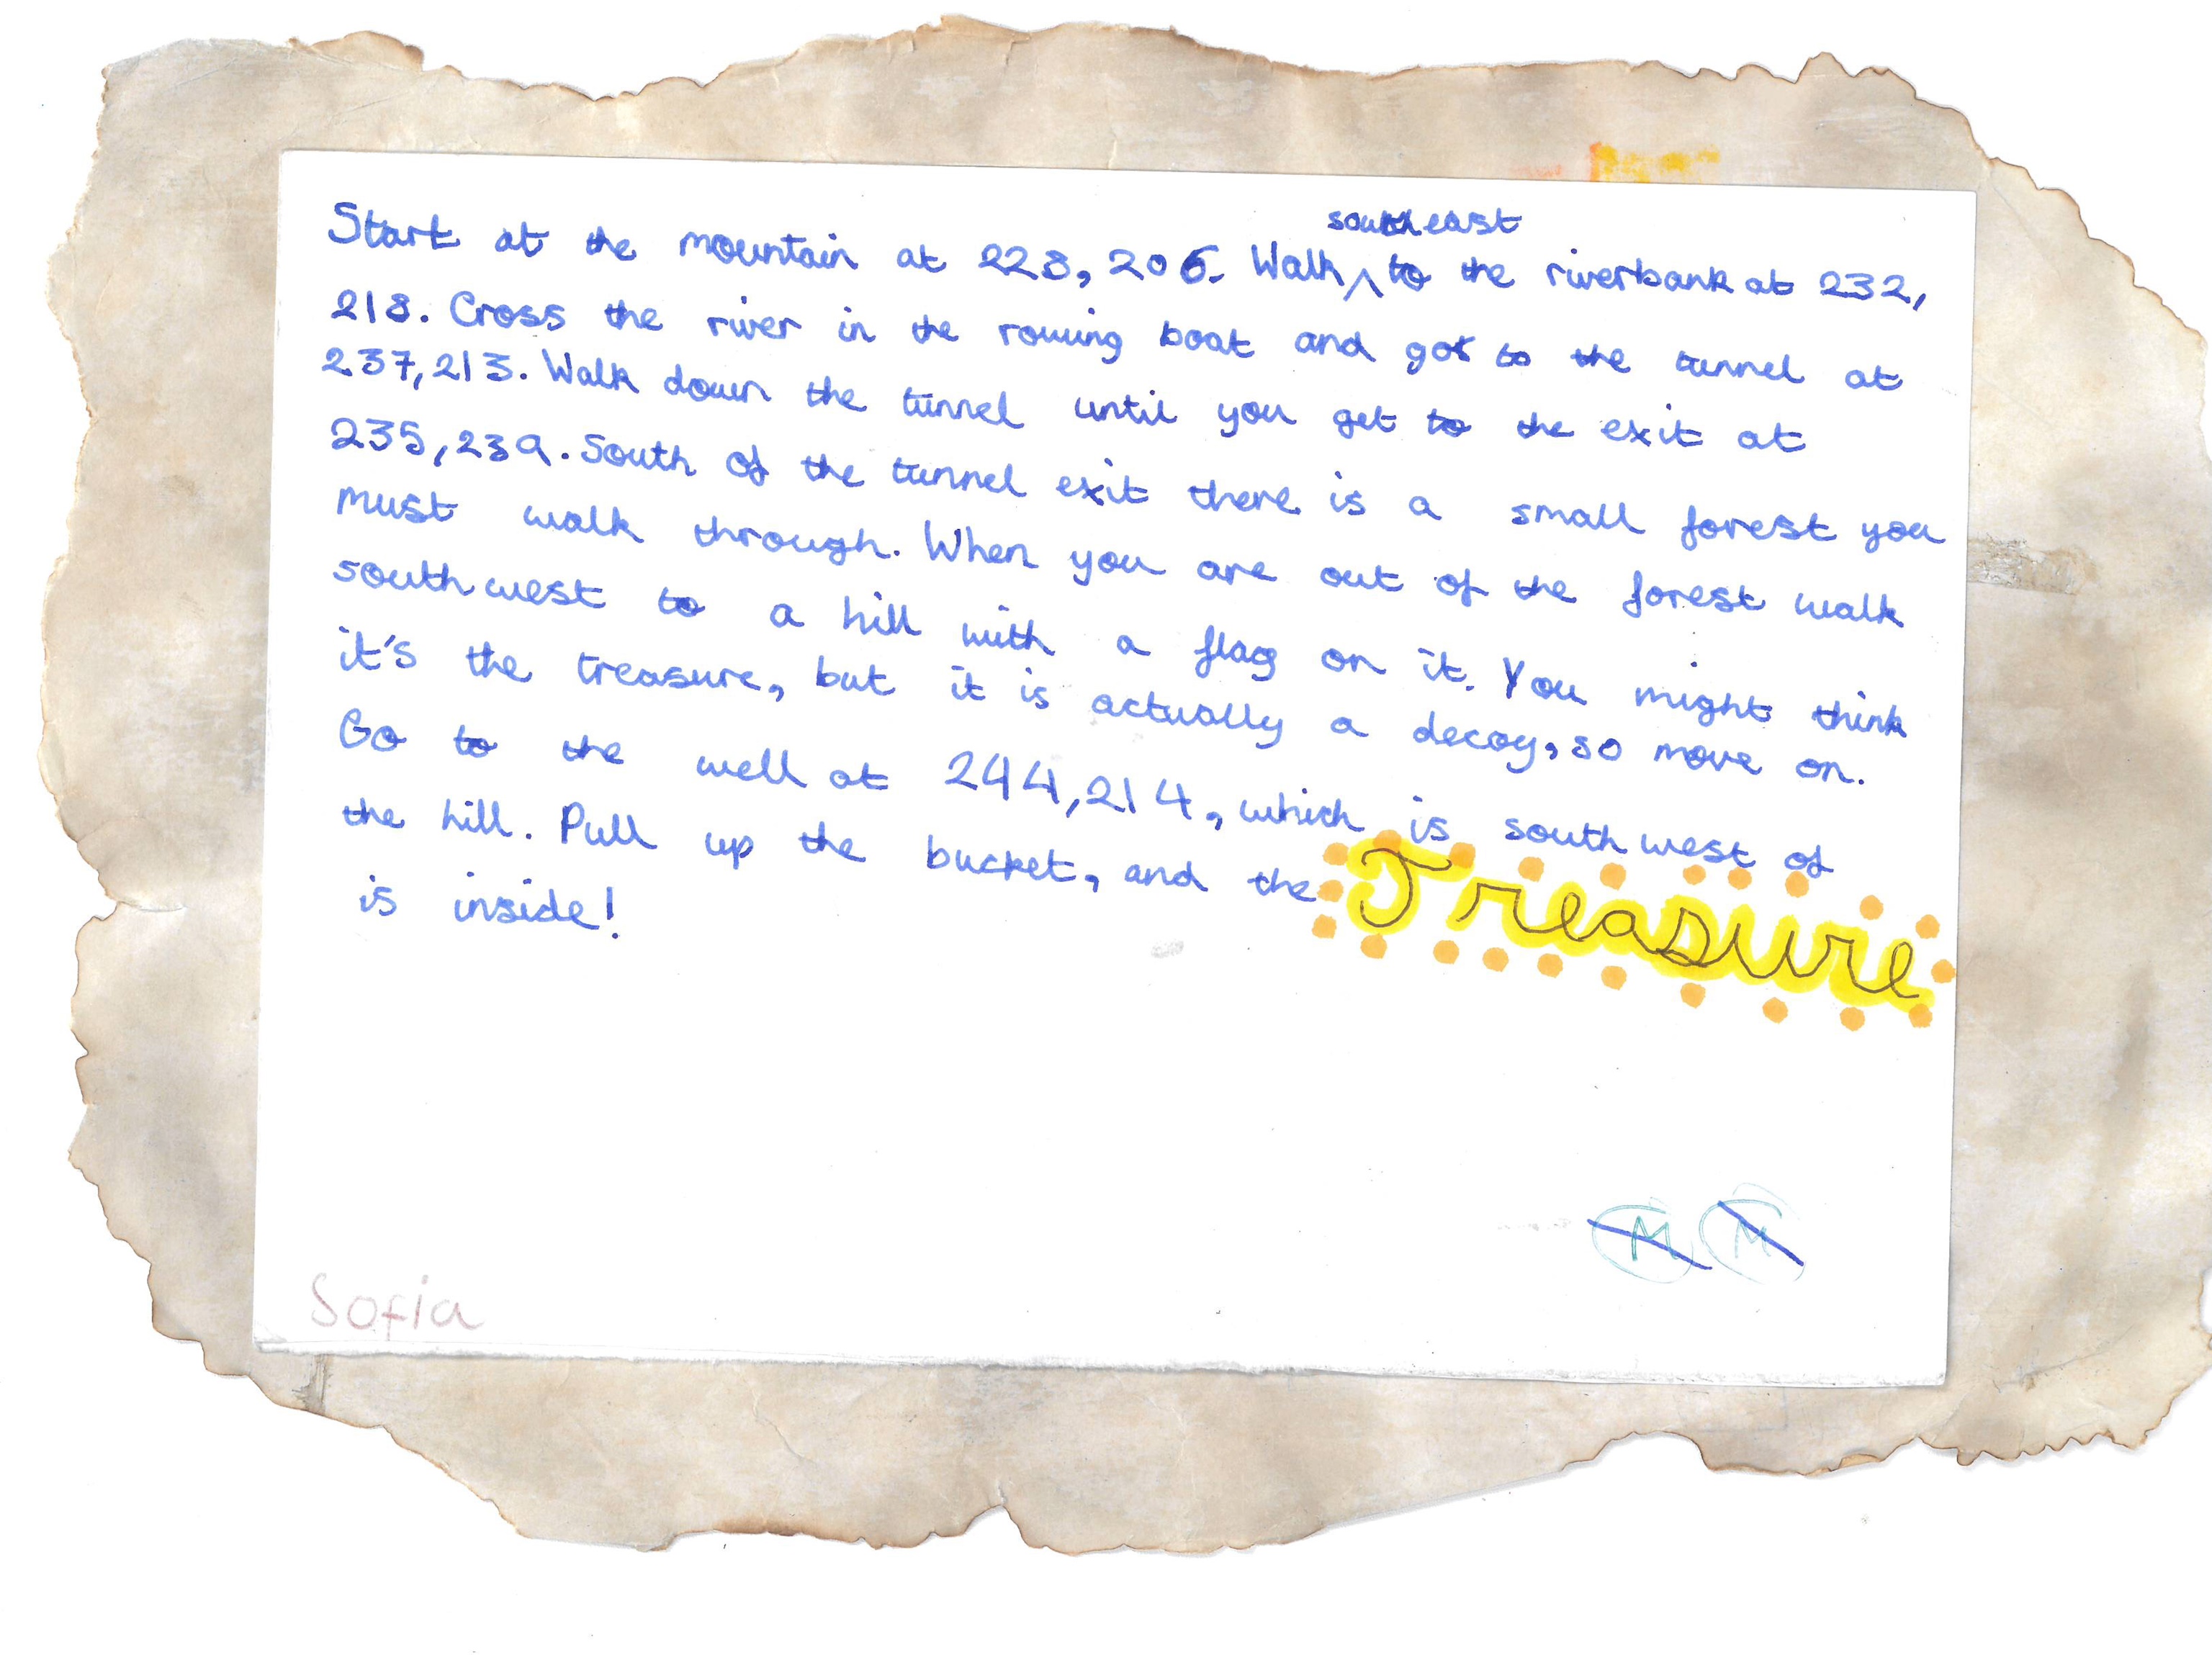 Start at the mountain at 228, 206. Walk southeast to the riverbank at 232,
218. Cross the river in the rowing boat and got to the tunnel at
237, 213. Walk down the tunnel until you get to the exit at
235, 239. South of the tunnel exit there is a small forest you
must walk through. When you are out of the forest walk
southwest to a hill with a flag on it. You might think
it's the treasure, but it is actually a decoy, so move on.
Go to the well at 244, 214, which is southwest of
the hill. Pull up the bucket, and the Treasure
is inside!
M M
Sofia